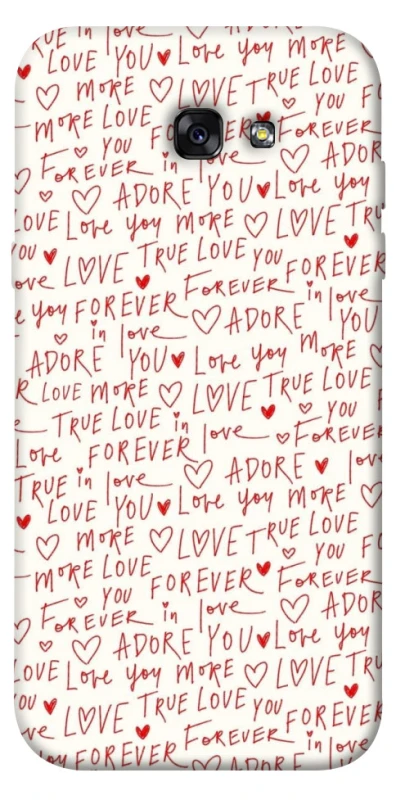 TRUE in love
LOVE YOU Love you MORE
MORE LOVE TRUE LOVE
MORE LOVE FOREVER YOU
YOU FOREVER
FOREVER in love ADOR
ADORE YOU Love you
LOVE Love you MORE LOVE TRU
YOU TRUE LOVE YOU FOREVER
love LOVE FOREVER in love
you FOREVER
in love ADORE YOU
ADORE YOU Love you MORE
LOVE MORE LOVE TRUE LOVE
TRUE LOVE in love YOU
Love FOREVER FOREVER
TRUE in love ADORE
LOVE YOU Love you MORE
MORE LOVE TRUE LOVE
MORE LOVE FOREVER YOU
YOU FOREVER
FOREVER in love ADOR
ADORE YOU Love you
LOVE Love you MORE LOVE TRU
YOU TRUE LOVE YOU FOREVER
LOVE FOREVER in love
YOU FOREVER
in love ADORE YOU